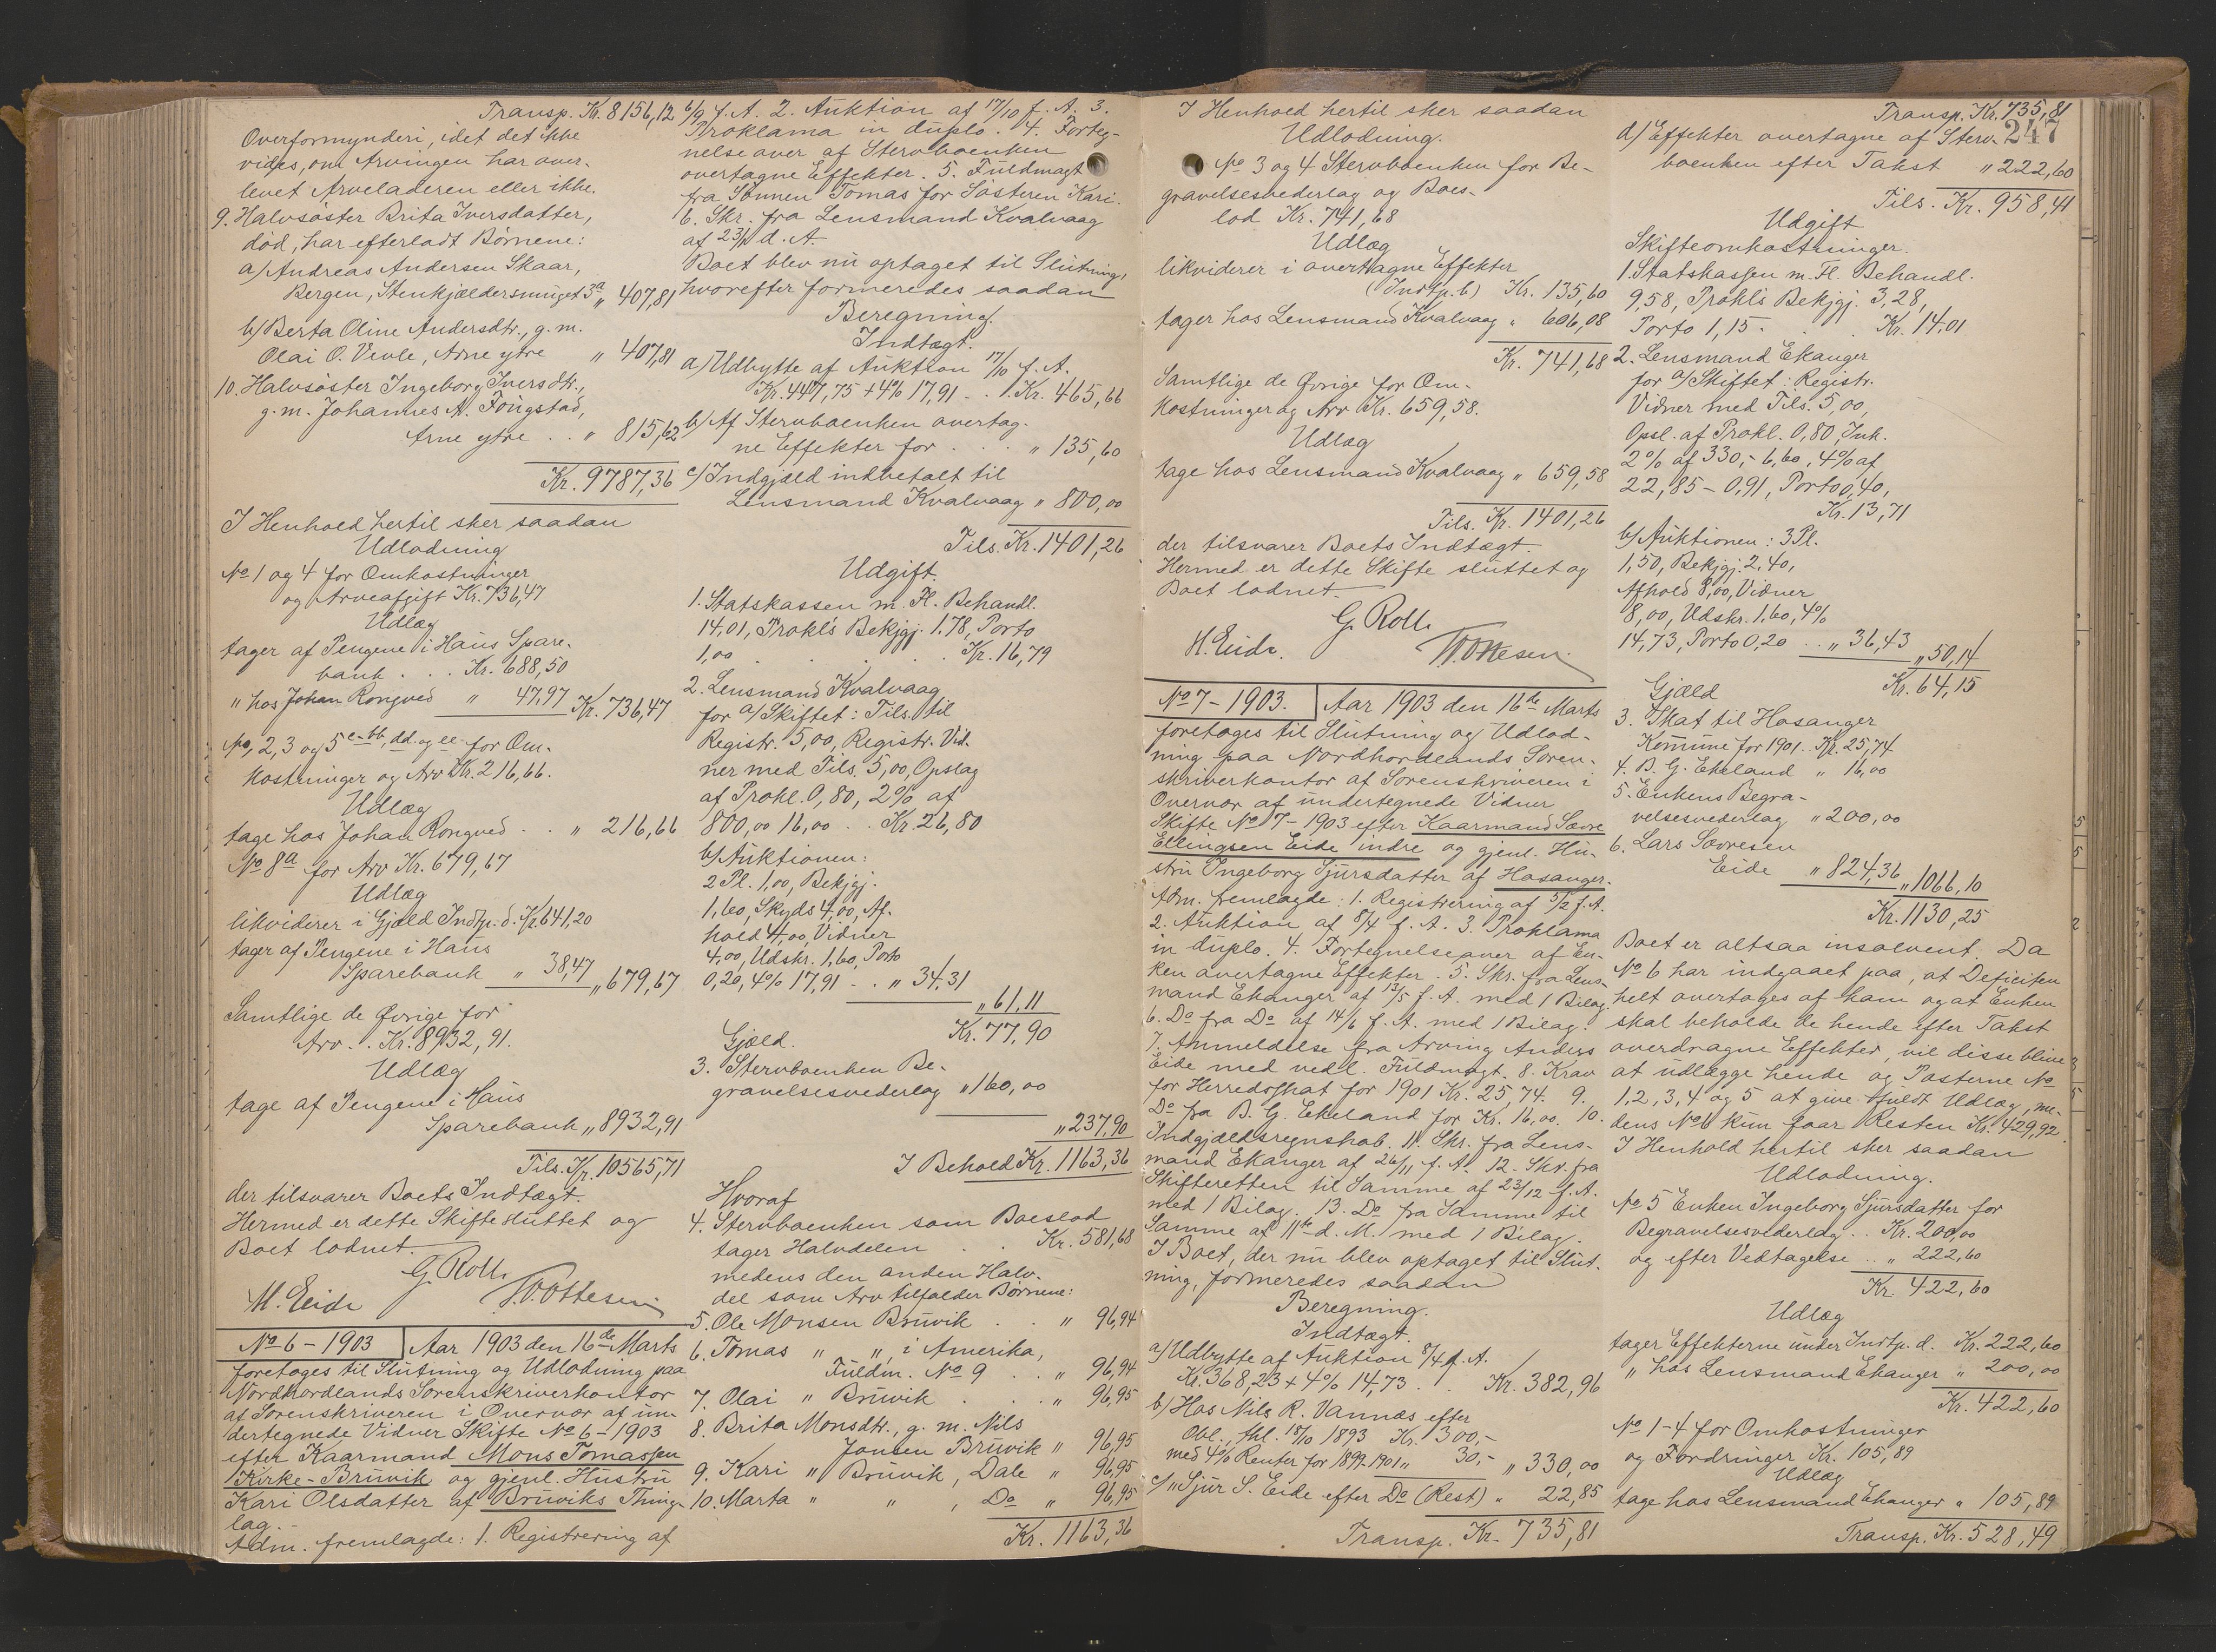 Transp. Kr. 8156,12
Overformynderi, idet det ikke
vides, om Arvingen har over-
levet Arveladeren eller ikke.
9. Halvsöster Brita Iversdatter,
död, har efterladt Börnene:
a/ Andreas Andersen Skaar,
Bergen, Stenkjældersmuget 3a " 407,81
b/ Berta Oline Andersdtr., g. m.
Olai O. Vevle, Arne ytre " 407,81
10. Halvsöster Ingeborg Iversdtr.,
g. m. Johannes N. Fougstad,
Arne ytre . . " 815,62
Kr. 9787,36
I Henhold hertil sker saadan
Udlodning
No 1 og 4 for Omkostninger
og Arveafgift Kr. 736,47
Udlæg
tager af Pengene i Haus Spare-
bank . . . Kr. 688,50
" hos Johan Rongved " 47,97 Kr. 736,47
No, 2, 3 og 5 c-bb, dd. og ee. for Om-
kostninger og Arv Kr. 216,66.
Udlæg
tage hos Johan Rongved . . " 216,66
No 8a for Arv Kr. 679,67
Udlæg
likviderer i Gjæld Indtp. d. Kr. 641,20
tager af Pengene i Haus
Sparebank " 38,47 " 679,67
Samtlige de Øvrige for
Arv . . Kr. 8932,91.
Udlæg
tage af Pengene i Haus
Sparebank " 8932,91
Tils. Kr. 10565,71
der tilsvarer Boets Indtægt.
Hermed er dette Skifte sluttet og
Boet lodnet.
G. Roll.
M. Eide W. Ottesen
No 6 - 1903 Aar 1903 den 16de Marts
foretoges til Slutning og Udlodning paa
Nordhordlands Sorenskriverkontor
af Sorenskriveren i Overvær af un-
dertegnede Vidner Skifte No 6 - 1903
efter Kaarmand Mons Tomassen
Kirke-Bruvik og gjenl. Hustru
Kari Olsdatter af Bruviks Thing-
lag. -
Adm. fremlagde: 1. Registrering af
6/9 f. A. 2. Auktion af 17/10 f. A. 3.
Proklama in duplo. 4. Forteg-
nelse over af Stervboenken
overtagne Effekter. 5. Fuldmagt
fra Sönnen Tomas for Sösteren Kari.
6. Skr. fra Lensmand Kvalvaag
af 23/1 d. A.
Boet blev nu optaget til Slutning,
hvorefter formeredes saadan
Beregning.
Indtægt.
a/ Udbytte af Auktion 17/10 f. A.
Kr. 447,75 + 4% 17,91 . . Kr. 465,66
b/ Af Stervboenken overtag-
ne Effekter for . . . " 135,60
c/ Indgjæld indbetalt til
Lensmand Kvalvaag " 800,00
Tils. Kr. 1401,26
Udgift.
1. Statskassen m. Fl. Behandl.
14,01, Prokl's Bekjgj. 1.78, Porto
1,00 . . . . . Kr. 16,79
2. Lensmand Kvalvaag
for a/ Skiftet: Tils. til
Registr. 5,00, Registr. Vid-
ner med Tils. 5,00, Opslag
af Prokl. 0,80, 2% af
800,00 16,00 . . Kr. 26,80
b/ Auktionen:
2 Pl. 1,00, Bekjgj.
1,60, Skyds 4,00, Af-
hold 4,00, Vidner
4,00, Udskr. 1,60, Porto
0,20, 4% 17,91 . . " 34.31
" 61,11
Kr. 77,90
Gjæld.
3. Stervboenken Be-
gravelsesvederlag " 160,00
" 237,90
I Behold Kr. 1163,36
Hvoraf
4. Stervboenken som Boeslod
tager Halvdelen . . Kr. 581,68
medens den anden Halv-
del som Arv tilfalder Børnene:
5. Ole Monsen Bruvik . . " 96,94
6. Tomas " ", i Amerika,
Fuldm. No 9 . . " 96,94
7. Olai " Bruvik . . . " 96,95
8. Brita Monsdtr., g. m. Nils
Jonsen Bruvik " 96,95
9. Kari " Bruvik, Dale " 96,95
10. Marta " " , Do " 96,95
Kr. 1163,36
I Henhold hertil sker saadan
Udlodning.
No 3 og 4 Stervboenken for Be-
gravelsesvederlag og Boes-
lod Kr. 741,68
Udlæg
likviderer i overtagne Effekter
(Indtp. b) Kr. 135,60
tager hos Lensmand Kvalvaag " 606,08
Kr. 741,68
Samtlige de Øvrige for Om-
kostninger og Arv Kr. 659,58.
Udlæg
tage hos Lensmand Kvalvaag " 659,58
Tils. Kr. 1401,26
der tilsvarer Boets Indtægt.
Hermed er dette Skifte sluttet og
Boet lodnet.
G. Roll.
M. Eide. W. Ottesen.
No 7 - 1903. Aar 1903 den 16de Marts
foretoges til Slutning og Udlod-
ning paa Nordhordlands Soren-
skriverkontor af Sorenskriveren i
Overvær af undertegnede Vidner
Skifte No 7 - 1903 efter Kaarmand Sævre
Ellingsen Eide indre og gjenl. Hu-
stru Ingeborg Sjursdatter af Hosanger.
Adm. fremlagde: 1. Registrering af 5/2 f. A.
2. Auktion af 8/4 f. A. 3. Proklama
in duplo. 4. Fortegnelse over af En-
ken overtagne Effekter. 5. Skr. fra Lens-
mand Ekanger af 13/5 f. A. med 1 Bilag.
6. Do fra Do af 14/6 f. A. med 1 Bilag.
7. Anmeldelse fra Arving Anders
Eide med vedl. Fuldmagt. 8. Krav
for Herredsskat for 1901 Kr. 25,74. 9.
Do fra B. G. Ekeland for Kr. 16,00. 10.
Indgjældsregnskab. 11. Skr. fra Lens-
mand Ekanger af 26/11 f. A. 12. Skr. fra
Skifteretten til Samme af 23/12 f. A.
med 1 Bilag. 13. Do fra Samme til
Samme af 11te d. M. med 1 Bilag.
I Boet, der nu blev optaget til Slut-
ning, formeredes saadan
Beregning.
Indtægt.
a/ Udbytte af Auktion 8/4 f. A.
Kr. 368,23 + 4% 14,73 . . . Kr. 382,96
b/ Hos Nils R. Vannæs efter
Obl., thl. 18/10 1893 Kr. 300,-
med 4% Renter for 1899-1901 " 30,- " 330,00
c/ " Sjur S. Eide efter Do (Rest) " 22,85
Transp. Kr. 735,81
Transp. Kr. 735,81
247
d/ Effekter overtagne af Sterv-
boenken efter Takst " 222,60
Tils. Kr. 958,41
Udgift
Skifteomkostninger.
1. Statskassen m. Fl. Behandl.
9,58, Prokl's Bekjgj. 3,28,
Porto 1,15 . . . Kr. 14.01
2. Lensmand Ekanger
for a/ Skiftet: Registr.
Vidner med Tils. 5,00,
Opsl. af Prokl. 0,80, Ink.
2% af 330,- 6,60, 4% af
22,85 - 0,91, Porto 0,40,
Kr. 13,71
b/ Auktionen: 3 Pl.
1,50, Bekjgj. 2,40,
Afhold 8,00, Vidner
8,00, Udskr. 1,60, 4%
14,73, Porto 0,20 . . " 36,43
" 50,14
Kr. 64,15
Gjæld
3. Skat til Hosanger
Kommune for 1901 . . Kr. 25,74
4. B. G. Ekeland " 16,00
5. Enkens Begra-
velsesvederlag " 200,00
6. Lars Sævresen
Eide " 824,36 " 1066,10
Kr. 1130,25
Boet er altsaa insolvent. Da
No 6 har indgaaet paa, at Deficiten
helt overtages af ham og at Enken
skal beholde de hende efter Takst
overdragne Effekter, vil disse blive
at udlægge hende og Posterne No
1, 2, 3, 4 og 5 at give fuldt Udlæg, me-
dens No 6 kun faar Resten Kr. 429,92.
I Henhold hertil sker saadan
Udlodning.
No 5 Enken Ingeborg Sjursdatter for
Begravelsesvederlag . . Kr. 200,00
og efter Vedtagelse . . " 222,60
Kr. 422,60
Udlæg
tager Effekterne under Indtp. d. Kr. 222,60
" hos Lensmand Ekanger " 200,00
Kr. 422,60
No 1-4 for Omkostninger
og Fordringer Kr. 105,89
Udlæg
tage hos Lensmand Ekanger " 105,89
Transp. Kr. 528,49